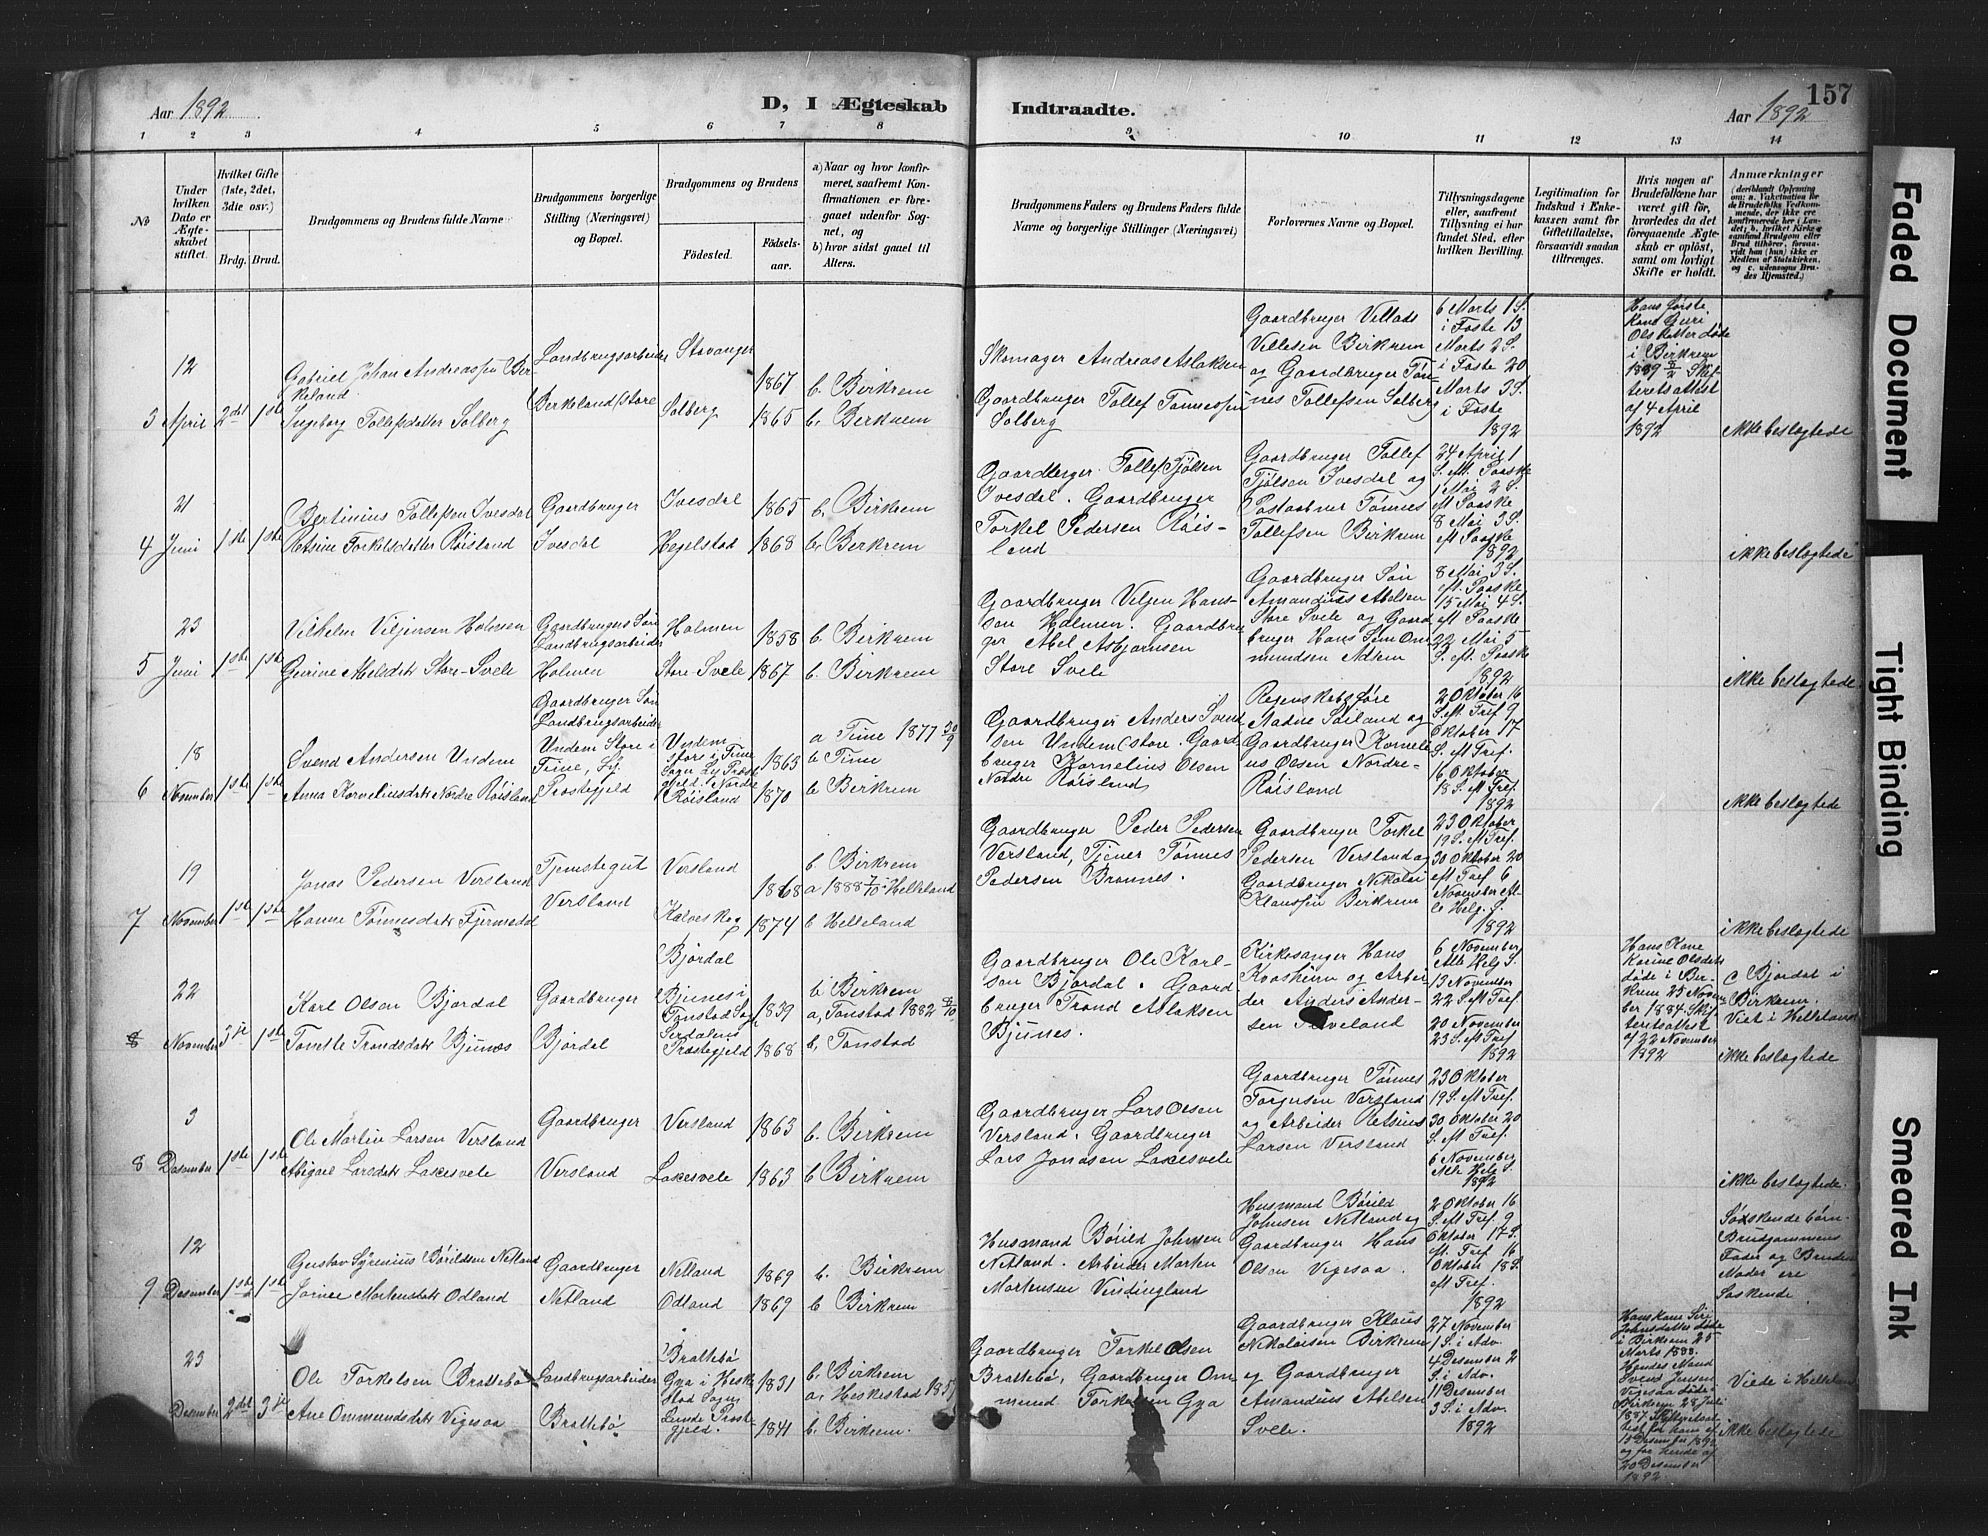 Aar 1892
D, I Ægteskab
Indtraadte.
Aar 1892
157
1 2 3 4 5 6 7 8 9 10 11 12 13 14
No
Under hvilken Dato er Ægteskabet stiftet.
Hvilket Gifte (1ste, 2det, 3die osv.)
Brdg. Brud.
Brudgommens og Brudens fulde Navne
Brudgommens borgerlige Stilling (Næringsvei) og Bopæl.
Brudgommens og Brudens
Fødested.
Fødselsaar.
a) Naar og hvor konfirmeret, saafremt Konfirmationen er foregaaet udenfor Sognet, og
b) hvor sidst gaaet til Alters.
Brudgommens Faders og Brudens Faders fulde Navne og borgerlige Stillinger (Næringsvei)
Forlovernes Navne og Bopæl.
Tillysningsdagene eller, saafremt Tillysning ei har fundet Sted, efter hvilken Bevilling.
Legitimation for Indskud i Enkekassen samt for Giftetilladelse, forsaavidt saadan tiltrænges.
Hvis nogen af Brudefolkene har været gift før, hvorledes da det foregaaende Ægteskab er opløst, samt om lovligt Skifte er holdt.
Anmærkninger
(deriblandt Oplysning om: a. Vakcination for de Brudefolks Vedkommende, der ikke ere konfirmerede her i Landet; b. hvilket Kirkesamfund Brudgom eller Brud tilhører, forsaavidt han (hun) ikke er Medlem af Statskirken, og c. udensogns Brudes Hjemsted.)
3
12 April
2det 1ste
Gabriel Johan Andreassen Birkeland
Ingeborg Tollefsdatter Solberg
Landbrugsarbeider
Birkeland store
Stavanger
Solberg
1867
1865
b. Birkrem
b. Birkrem
Skomager Andreas Aslaksen
Gaardbruger Tollef Tønnessen
Solberg
Gaardbruger Villads
Villesen Birkrem
og Gaardbruger Tønnes Tollefsen Solberg
6 Marts 1 S.
i Faste 13
Marts 2 S.
i Faste 20
Marts 3 S.
i Faste
1892
Hans første
Kone Guri
Olsdatter døde
i Birkrem
Skifteretsattest
af 4 April
1892
ikke beslægtede
4
21 Juni
1ste 1ste
Bertinius Tollefsen Ivesdal
Torkelsdatter Røisland
Gaardbruger
Ivesdal
Ivesdal
Hegelstad
1865
1868
b. Birkrem
b. Birkrem
Gaardbruger Tollef Tjølsen
Ivesdal. Gaardbruger
Torkel Pedersen Røisland
Gaardbruger Tollef
Tjølsen Ivesdal og
Postaabner Tønnes
Tollefsen Birkrem
24 April 1
S. eft. Paaske
1 Mai 2 S.
eft Paaske
8 Mai 3 S.
eft Paaske
1892
ikke beslægtede
5
23 Juni
1ste 1ste
Vilhelm Viljensen Holmen
Store-Svele
Gaardbrugers Søn
Landbrugsarbeider
Holmen
Holmen
Store-Svele
1858
1867
b. Birkrem
b. Birkrem
Gaardbruger Veljen Hansen Holmen. Gaardbruger Abel Asbjørnsen
Store Svele
Gaardbruger Søn
Amandius Abelsen
Store Svele og Gaardbruger Hans Sem Ommundsen
8 Mai 3 S.
eft. Paaske
15 Mai 4 S.
eft Paaske
22 Mai 5
S. eft. Paaske
1892
ikke beslægtede
6
18 November
1ste 1ste
Svend Andersen Undem
Anna Korneliusdatr Nordre Røisland
Gaardbruger Søn
Landbrugsarbeider
Undem Store i
Time, Ly
Præstegjeld
Undem
store i Time
Sogn Ly Præstegjeld. Nordre
Røisland
1863
1870
a Time 1877 30/9
b Time
b Birkrem
Gaardbruger Anders Svendsen Undem store. Gaardbruger Kornelius Olsen
Nordre Røisland
Regnskabsføre
Nadne Søiland og
Gaardbruger Kornelius Olsen Nordre-
Røisland
2 Oktober 16
S. eft. Tref 9
Oktober 17
S. eft Tref.
16 Oktober
18 S. eft Tref.
1892
ikke beslægtede
7
19 November
1ste 1ste
Jonas Pedersen Versland
Hanne Tønnesdatr Fjermedal
Tjenstegut
Versland
Versland
Kalveskog
1868
1874
b Birkrem
a 1888 7/10 Helleland
b Helleland
Gaardbruger Peder Pedersen
Versland, Tjener Tønnes
Pedersen Bronnes.
Gaardbruger Torkel
Pedersen Versland og
Gaardbruger Nikolai
Klaussen Birkrem
23 Oktober
19 S. eft Tref.
30 Oktober 20
eft Tref 6
November Alle Helg. S.
1892
ikke beslægtede
8
22 November
3je 1ste
Karl Olsen Bjordal
Tonette Trondsdatr Bjunes
Gaardbruger
Bjordal
Bjørdal
Bjunes i
Tonstad Sogn
Sirdalens
Præstegjeld
1839
1868
b Birkrem
a, Tonstad 1882 8/10
b. Tonstad
Gaardbruger Ole Karlsen Bjordal. Gaardbruger Trond Aslaksen
Bjunes.
Kirkesanger Hans
Kvasheim og Arbeider Anders Andersen
6 November
Alle Helg S.
13 November
22 S. eft Tref.
20 November
23 S. eft Tref
1892
Hans Kone
Karine Olsdatr
døde i Birkrem 25 November 1884 Skifteretsattest
af 22 November
1892
c Bjordal i
Birkrem.
Viet i Helleland
ikke beslægtede
8
3 Desember
1ste 1ste
Ole Martin Larsen Versland
Abigael Larsdatr Lakesvele
Gaardbruger
Versland
Versland
Lakesvele
1863
1863
b. Birkrem
b Birkrem
Gaardbruger Lars Olsen
Versland. Gaardbruger
Lars Jonassen Lakesvele
Gaardbruger Tønnes
Torgersen Versland
og Arbeider Retsius
Larsen Versland
23 Oktober
19 S. eft Tref.
30 Oktober 20
S. eft Tref.
6 November
Alle Helg S.
1892
ikke beslægtede.
9
12 Desember
1ste 1ste
Gustav Syrenius Børildsen Netland
Mortensdatr Odland
Gaardbruger
Netland
Netland
Odland
1869
1869
b. Birkrem
b Birkrem
Husmand Børild Johnsen
Netland. Arbeider Morten
Mortensen Vindingland
Husmand Børild
Johnsen Netland og
Gaardbruger Hans
Olsen Vigesaa.
2 Oktober 16
S. eft Tref. 9
Oktober 17 S.
eft. Tref 16
Oktober 18 S.
eft Tref.
1892
Søskendebørn
Brudgommens
Fader og Brudens
Moder ere
Søskende.
23 Desember
2det 3je
Ole Torkelsen Brattebø
Ane Ommundsdatr Vigesaa
Landbrugsarbeider
Brattebø
Brattebø
Gya i Heskestad Sogn
Lunde Præstegjeld.
1831
1841
b. Birkrem
a. Heskestad
b. Birkrem.
Gaardbruger Torkel Olsen
Brattebø, Gaardbruger Ommund Torkelsen Gya
Gaardbruger Klaus
Nikolaisen Birkrem
og Gaardbruger
Amandius Abelsen
Svele.
27 November
1 S. i Adv.
4 Desember 2
S. i Adv.
11 Desember
3 S. i Adv.
1892
Hans Kone Siri
Johnsdatter døde
i Birkrem 25
Marts 1888.
Hendes Mand
Svend Jensen
Vigesaa døde i
Birkrem 28 Juli
1887. Skifteretsattest for ham af
15 Desember 1892
og for hende af
20 Desember
1892.
Viede i Helleland
ikke beslægtede
Faded Document
Tight Binding
Smeared Ink